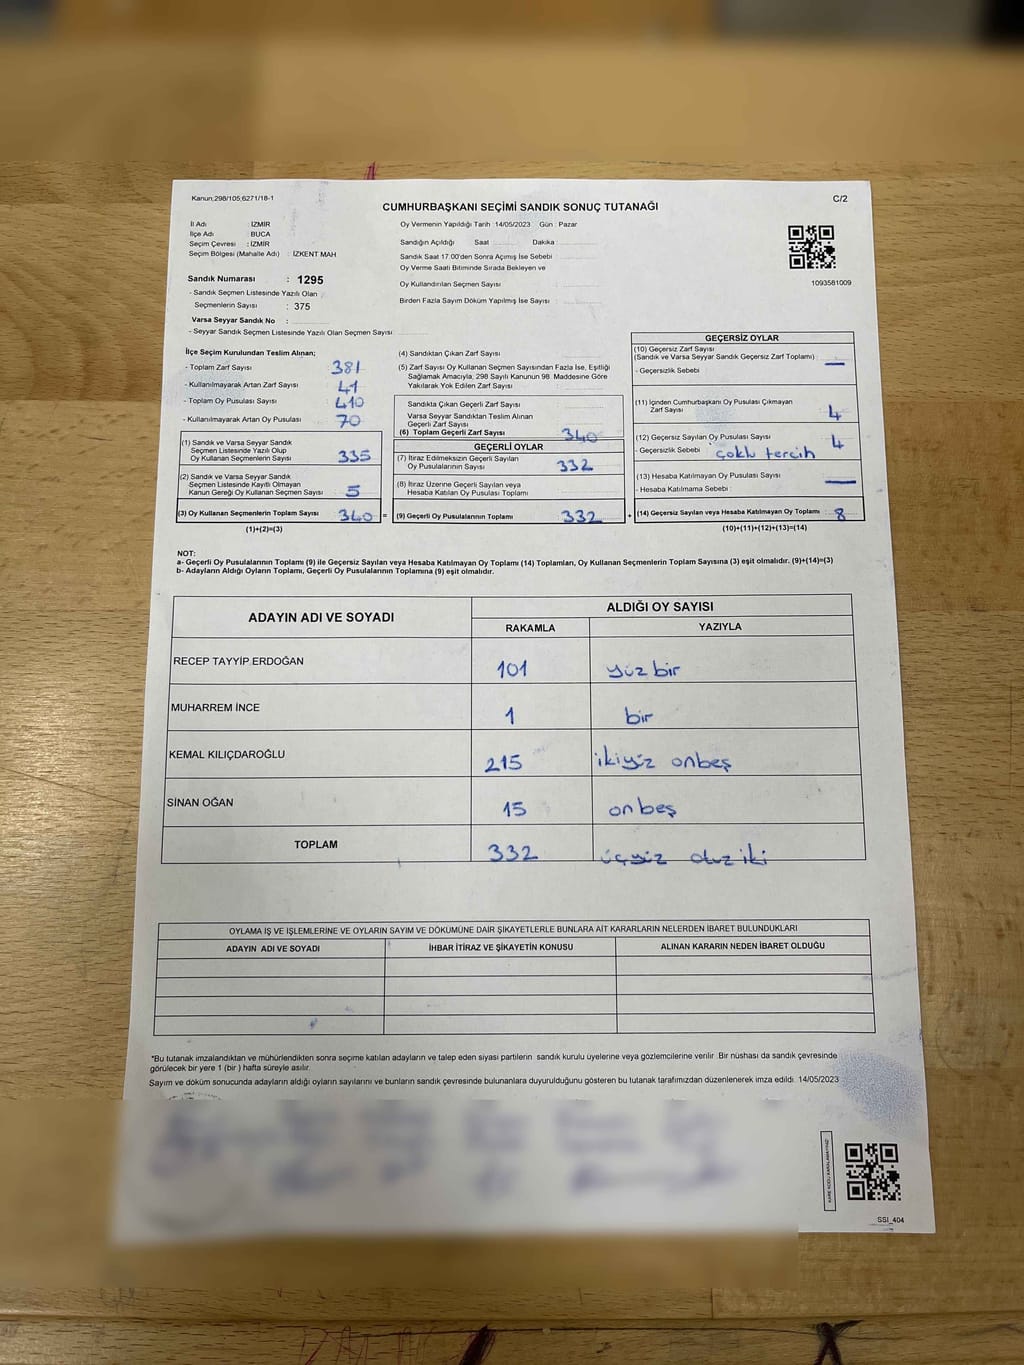 Kanun;298/105;6271/18-1
C/2
CUMHURBAŞKANI SEÇİMİ SANDIK SONUÇ TUTANAĞI
İl Adı : İZMİR
İlçe Adı : BUCA
Seçim Çevresi : İZMİR
Seçim Bölgesi (Mahalle Adı) : İZKENT MAH
Sandık Numarası : 1295
- Sandık Seçmen Listesinde Yazılı Olan
Seçmenlerin Sayısı : 375
Varsa Seyyar Sandık No :
- Seyyar Sandık Seçmen Listesinde Yazılı Olan Seçmen Sayısı
Oy Vermenin Yapıldığı Tarih :14/05/2023 Gün : Pazar
Sandığın Açıldığı Saat Dakika
Sandık Saat 17.00'den Sonra Açımış İse Sebebi
Oy Verme Saati Bitiminde Sırada Bekleyen ve
Oy Kullandırılan Seçmen Sayısı :
Birden Fazla Sayım Döküm Yapılmış İse Sayısı :
1093581009
İlçe Seçim Kurulundan Teslim Alınan;
- Toplam Zarf Sayısı 381
- Kullanılmayarak Artan Zarf Sayısı 41
- Toplam Oy Pusulası Sayısı 410
- Kullanılmayarak Artan Oy Pusulası 70
(1) Sandık ve Varsa Seyyar Sandık
Seçmen Listesinde Yazılı Olup
Oy Kullanan Seçmenlerin Sayısı 335
(2) Sandık ve Varsa Seyyar Sandık
Seçmen Listesinde Kayıtlı Olmayan
Kanun Gereği Oy Kullanan Seçmen Sayısı 5
(3) Oy Kullanan Seçmenlerin Toplam Sayısı 340 =
(1)+(2)=(3)
(4) Sandıktan Çıkan Zarf Sayısı
(5) Zarf Sayısı Oy Kullanan Seçmen Sayısından Fazla İse, Eşitliği
Sağlamak Amacıyla, 298 Sayılı Kanunun 98. Maddesine Göre
Yakılarak Yok Edilen Zarf Sayısı :
Sandıkta Çıkan Geçerli Zarf Sayısı
Varsa Seyyar Sandıktan Teslim Alınan
Geçerli Zarf Sayısı
(6) Toplam Geçerli Zarf Sayısı 340
GEÇERLİ OYLAR
(7) İtiraz Edilmeksizin Geçerli Sayılan
Oy Pusulalarının Sayısı 332
(8) İtiraz Üzerine Geçerli Sayılan veya
Hesaba Katılan Oy Pusulası Toplamı
(9) Geçerli Oy Pusulalarının Toplamı 332 +
GEÇERSİZ OYLAR
(10) Geçersiz Zarf Sayısı
(Sandık ve Varsa Seyyar Sandık Geçersiz Zarf Toplamı) : —
- Geçersizlik Sebebi :
(11) İçinden Cumhurbaşkanı Oy Pusulası Çıkmayan
Zarf Sayısı 4
(12) Geçersiz Sayılan Oy Pusulası Sayısı 4
- Geçersizlik Sebebi : çoklu tercih
(13) Hesaba Katılmayan Oy Pusulası Sayısı —
- Hesaba Katılmama Sebebi :
(14) Geçersiz Sayılan veya Hesaba Katılmayan Oy Toplamı 8
(10)+(11)+(12)+(13)=(14)
NOT:
a- Geçerli Oy Pusulalarının Toplamı (9) ile Geçersiz Sayılan veya Hesaba Katılmayan Oy Toplamı (14) Toplamları, Oy Kullanan Seçmenlerin Toplam Sayısına (3) eşit olmalıdır. (9)+(14)=(3)
b- Adayların Aldığı Oyların Toplamı, Geçerli Oy Pusulalarının Toplamına (9) eşit olmalıdır.
ADAYIN ADI VE SOYADI
ALDIĞI OY SAYISI
RAKAMLA YAZIYLA
RECEP TAYYİP ERDOĞAN 101 yüz bir
MUHARREM İNCE 1 bir
KEMAL KILIÇDAROĞLU 215 ikiyüz onbeş
SİNAN OĞAN 15 onbeş
TOPLAM 332 üçyüz otuz iki
OYLAMA İŞ VE İŞLEMLERİNE VE OYLARIN SAYIM VE DÖKÜMÜNE DAİR ŞİKAYETLERLE BUNLARA AİT KARARLARIN NELERDEN İBARET BULUNDUKLARI
ADAYIN ADI VE SOYADI İHBAR İTİRAZ VE ŞİKAYETİN KONUSU ALINAN KARARIN NEDEN İBARET OLDUĞU
*Bu tutanak imzalandıktan ve mühürlendikten sonra seçime katılan adayların ve talep eden siyasi partilerin sandık kurulu üyelerine veya gözlemcilerine verilir .Bir nüshası da sandık çevresinde
görülecek bir yere 1 (bir ) hafta süreyle asılır.
Sayım ve döküm sonucunda adayların aldığı oyların sayılarını ve bunların sandık çevresinde bulunanlara duyurulduğunu gösteren bu tutanak tarafımızdan düzenlenerek imza edildi. 14/05/2023
SSI_404